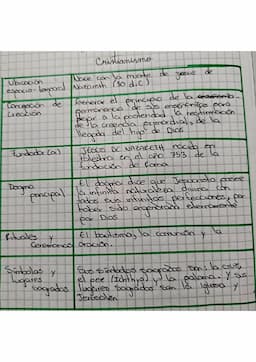 Cristianismo
Ubicación
espacio-temporal
Nace con la muerte de Jesús de
Nazareth (30 d.C)
Concepción de
Creación
Generar el principio de la
permanencia de sus enseñanzas para
llegar a la posteridad, la reafirmación
de la creencia primordial, de la
llegada del hijo de Dios
Fundador(a)
JESÚS DE NAZARETH nacido en
Palestina en el año 753 de la
fundación de Roma
Dogma
principal
El dogma dice que Jesucristo posee
la infinita naturaleza divina con
todas sus infinitas perfecciones, por
haber sido engendrado eternamente
por Dios
Rituales y
Ceremonias
El bautismo, la comunión y la
oración.
Símbolos y
lugares
sagrados
Sus símbolos sagrados son: la cruz,
el pez (Ichthys) y la paloma. Y sus
lugares sagrados son la iglesia y
Jerusalén